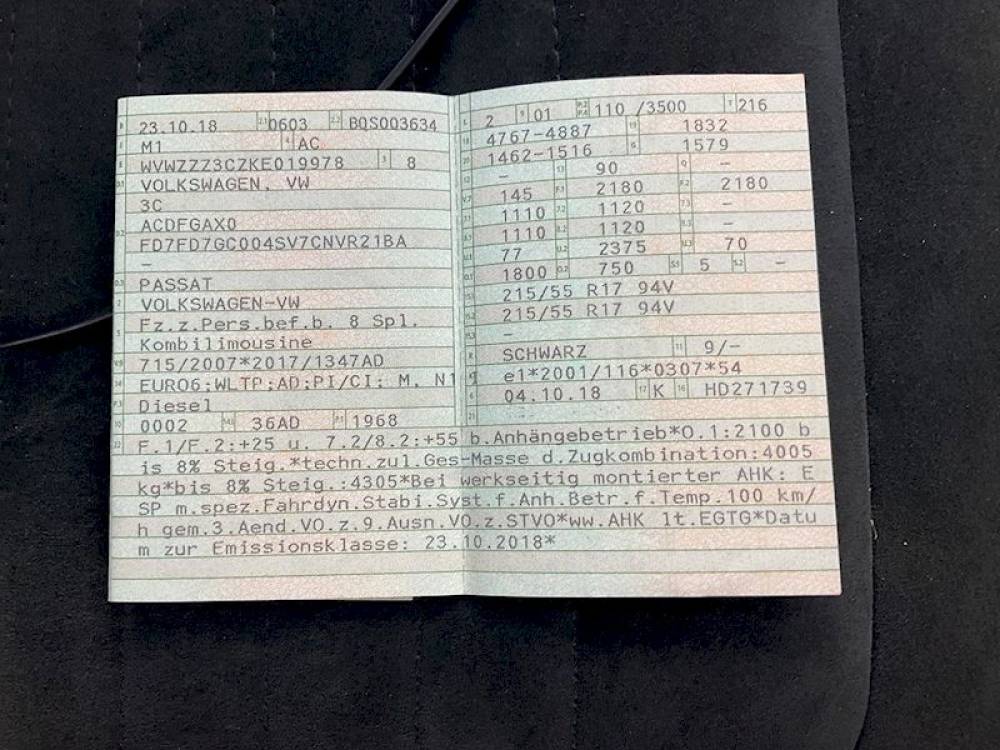 23.10.18 0603 BQS003634
M1 AC
WVWZZZ3CZKE019978 8
VOLKSWAGEN, VW
3C
ACDFGAX0
FD7FD7GC004SV7CNVR21BA
–
PASSAT
VOLKSWAGEN-VW
Fz.z.Pers.bef.b. 8 Spl.
Kombilimousine
715/2007*2017/1347AD
EURO6;WLTP;AD;PI/CI; M, N1
Diesel
0002 36AD 1968
2 01 110 /3500 216
4767-4887 1832
1462-1516 1579
– 90 –
145 2180 2180
1110 1120 –
1110 1120 –
77 2375 70
1800 750 5 –
215/55 R17 94V
215/55 R17 94V
–
SCHWARZ 9/–
e1*2001/116*0307*54
04.10.18 K HD271739
F.1/F.2:+25 u. 7.2/8.2:+55 b.Anhängebetrieb*O.1:2100 b
is 8% Steig.*techn.zul.Ges-Masse d.Zugkombination:4005
kg*bis 8% Steig.:4305*Bei werkseitig montierter AHK: E
SP m.spez.Fahrdyn.Stabi.Syst.f.Anh.Betr.f.Temp.100 km/
h gem.3.Aend.VO.z.9.Ausn.VO.z.STVO*ww.AHK lt.EGTG*Datu
m zur Emissionsklasse: 23.10.2018*